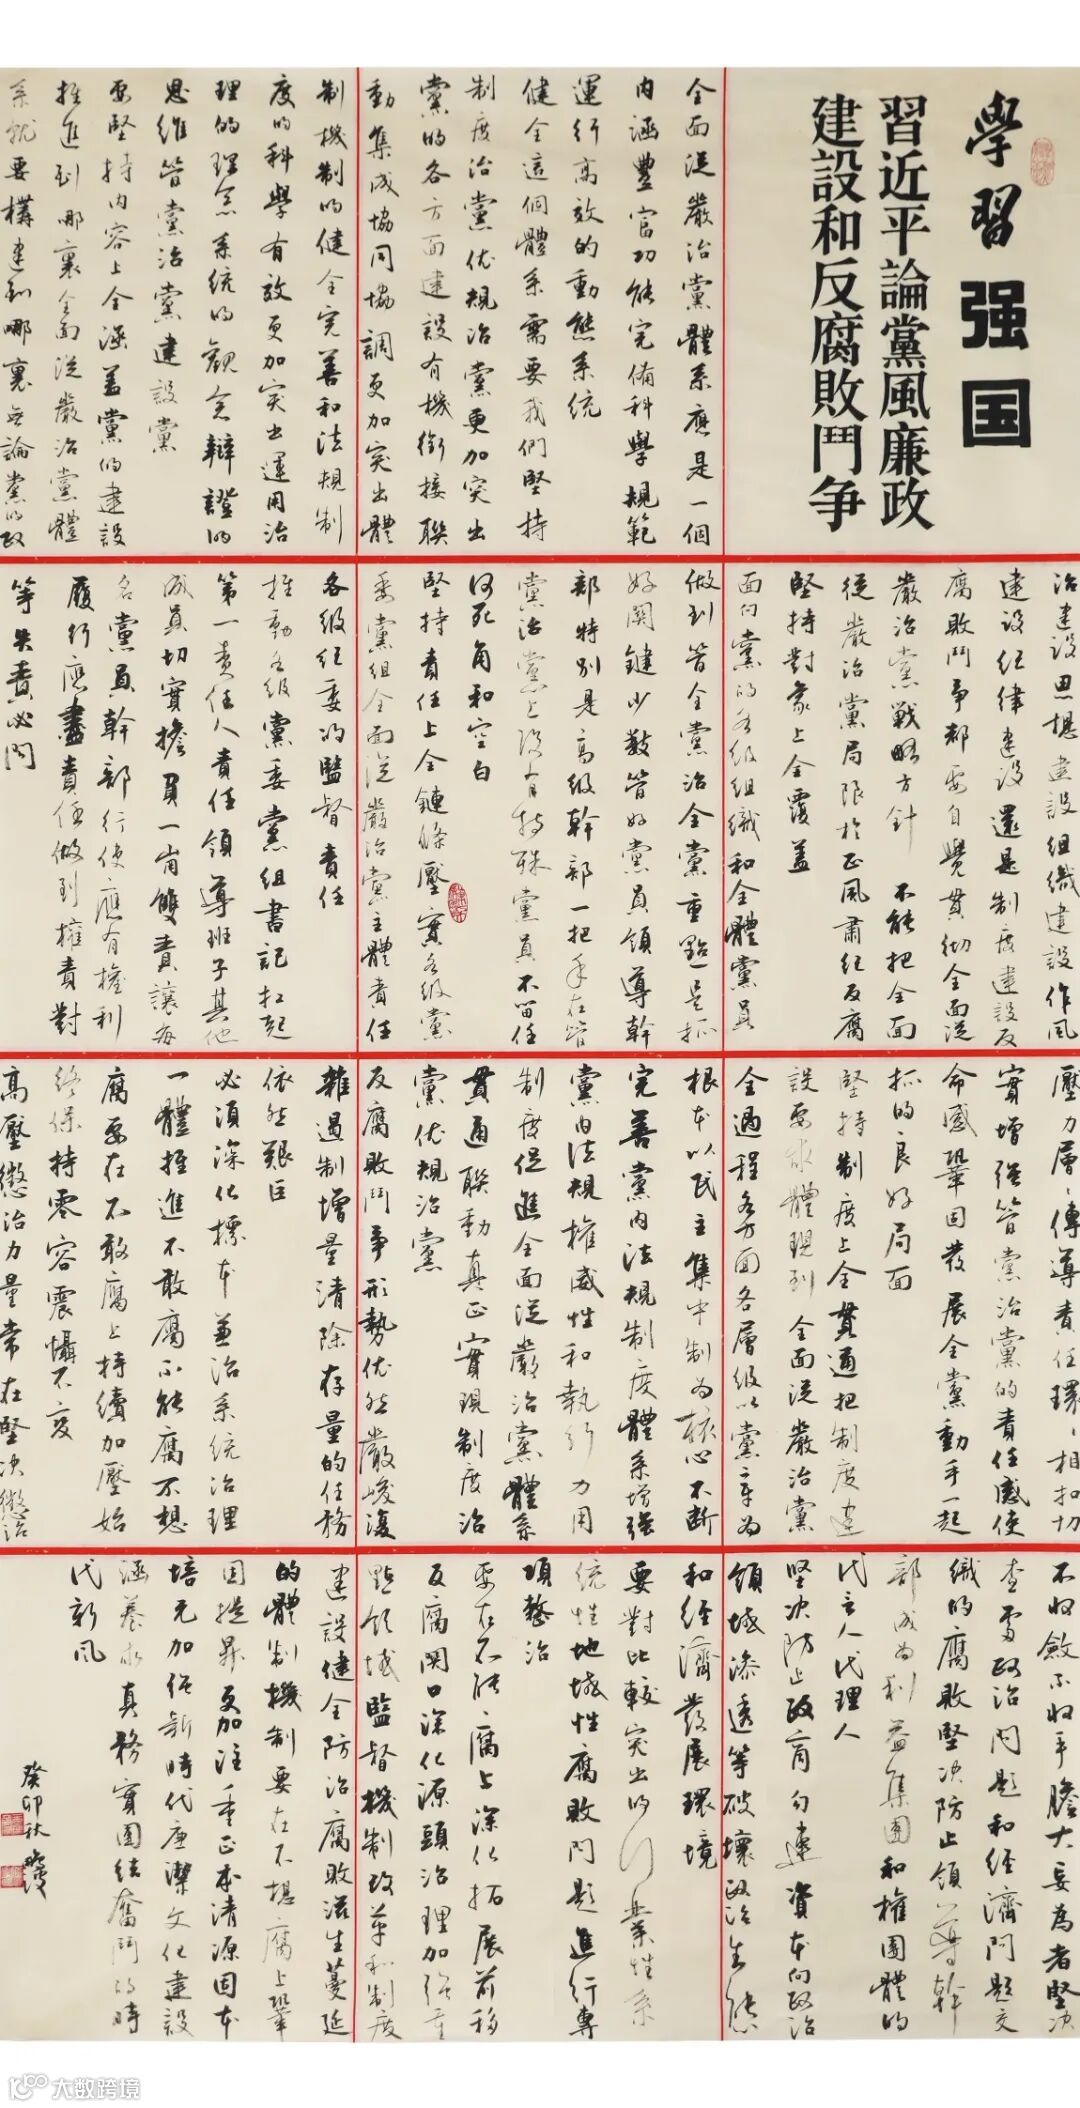 學習强国
習近平論黨風廉政
建設和反腐敗鬥争
全面從嚴治黨體系應是一個
内涵豐富功能完備科學規範
運行高效的動態系統
健全這個體系需要我們堅持
制度治黨依規治黨更加突出
黨的各方面建設有機銜接聯
動集成協同協調更加突出體
制機制的健全完善和法規制
度的科學有效更加突出運用治
理的理念系統的觀念辯證的
思維管黨治黨建設黨
要堅持内容上全涵蓋黨的建設
推進到哪裏全面從嚴治黨體
系就要構建到哪裏無論黨的政
治建設思想建設組織建設作風
建設紀律建設還是制度建設反
腐敗鬥爭都要自覺貫彻全面從
嚴治黨戰略方針 不能把全面
從嚴治黨局限於正風肅紀反腐
堅持對象上全覆蓋
面向黨的各級組織和全體黨員
做到管全黨治全黨重點是抓
好関鍵少數管好黨員領導幹
部特别是高級幹部一把手在管
黨治黨上没有特殊黨員不留任
何死角和空白
堅持責任上全鏈條壓實各級黨
委黨組全面從嚴治黨主體責任
各級紀委的監督責任
推動各級黨委黨組書記扛起
第一責任人責任領導班子其他
成員切實擔負一崗雙責讓每
名黨員幹部行使應有權利
履行應盡責任做到擁責對
等失責必問
壓力層層傳導責任環環相扣切
實增强管黨治黨的責任感使
命感鞏固發展全黨動手一起
抓的良好局面
堅持制度上全貫通把制度建
設要求體現到全面從嚴治黨
全過程各方面各層級以黨章為
根本以民主集中制為核心不断
完善黨内法規制度體系增强
黨内法規權威性和執行力用
制度促進全面從嚴治黨體系
貫通聯動真正實現制度治
黨依規治黨
反腐敗鬥爭形勢依然嚴峻復
雜遏制增量清除存量的任務
依然艱巨
必須深化標本兼治系統治理
一體推進不敢腐不能腐不想
腐要在不敢腐上持續加壓始
終保持零容震懾不變
高壓懲治力量常在堅决懲治
不收斂不收手膽大妄為者堅决
查處政治問題和經濟問題交
織的腐敗堅决防止領導幹
部成為利益集團和權團體的
代言人代理人
堅决防止政商勾連資本向政治
領域滲透等破壞政治生態
和經濟發展環境
要對比較突出的行業性系
統性地域性腐敗問題進行專
項整治
要在不能腐上深化拓展前移
反腐関口深化源頭治理加强重
點領域監督機制改革和制度
建設健全防治腐敗滋生蔓延
的體制機制要在不想腐上鞏
固提昇更加注重正本清源固本
培元加强新時代廉潔文化建設
涵養求真務實團結奮鬥的時
代新風
癸卯秋
大数跨境